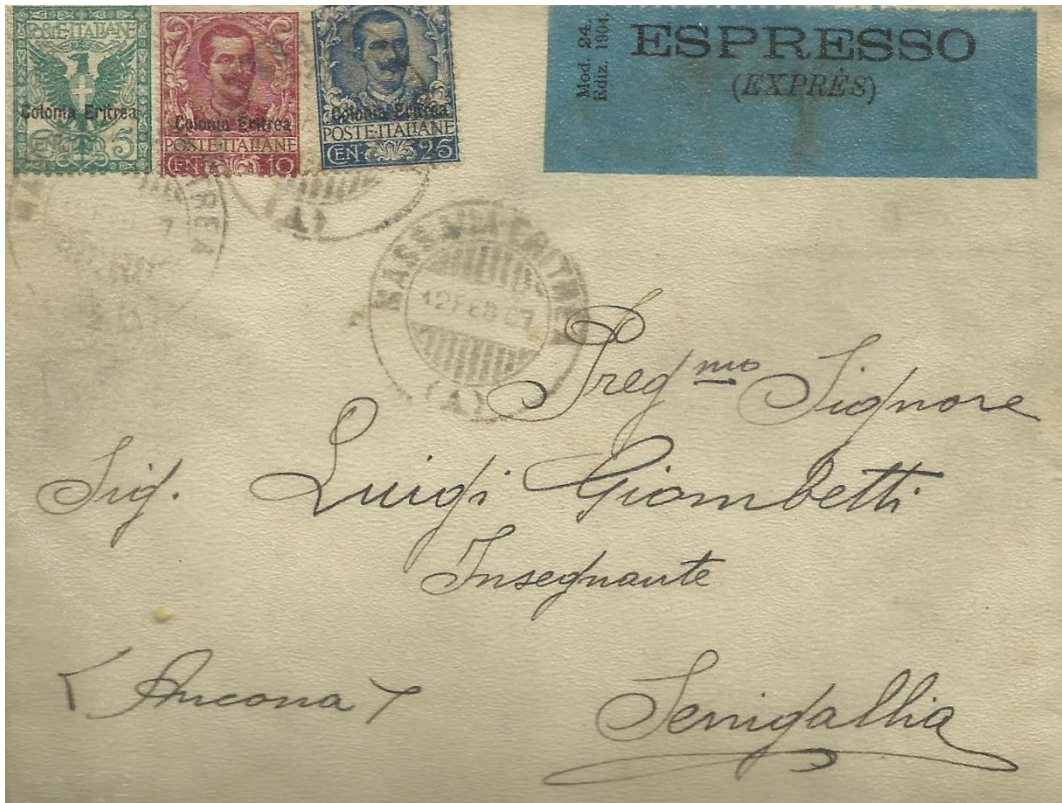 POSTE ITALIANE
Colonia Eritrea
CEN 5
Colonia Eritrea
POSTE·ITALIANE
CEN 10
Colonia Eritrea
POSTE·ITALIANE
CEN 25
Mod. 24.
Ediz. 1904.
ESPRESSO
(EXPRÈS)
(A)
MASSAUA ERITREA
12 FEB 07
(A)
Preg.mo Signore
Sig. Luigi Giombetti
Insegnante
(Ancona)
Senigallia